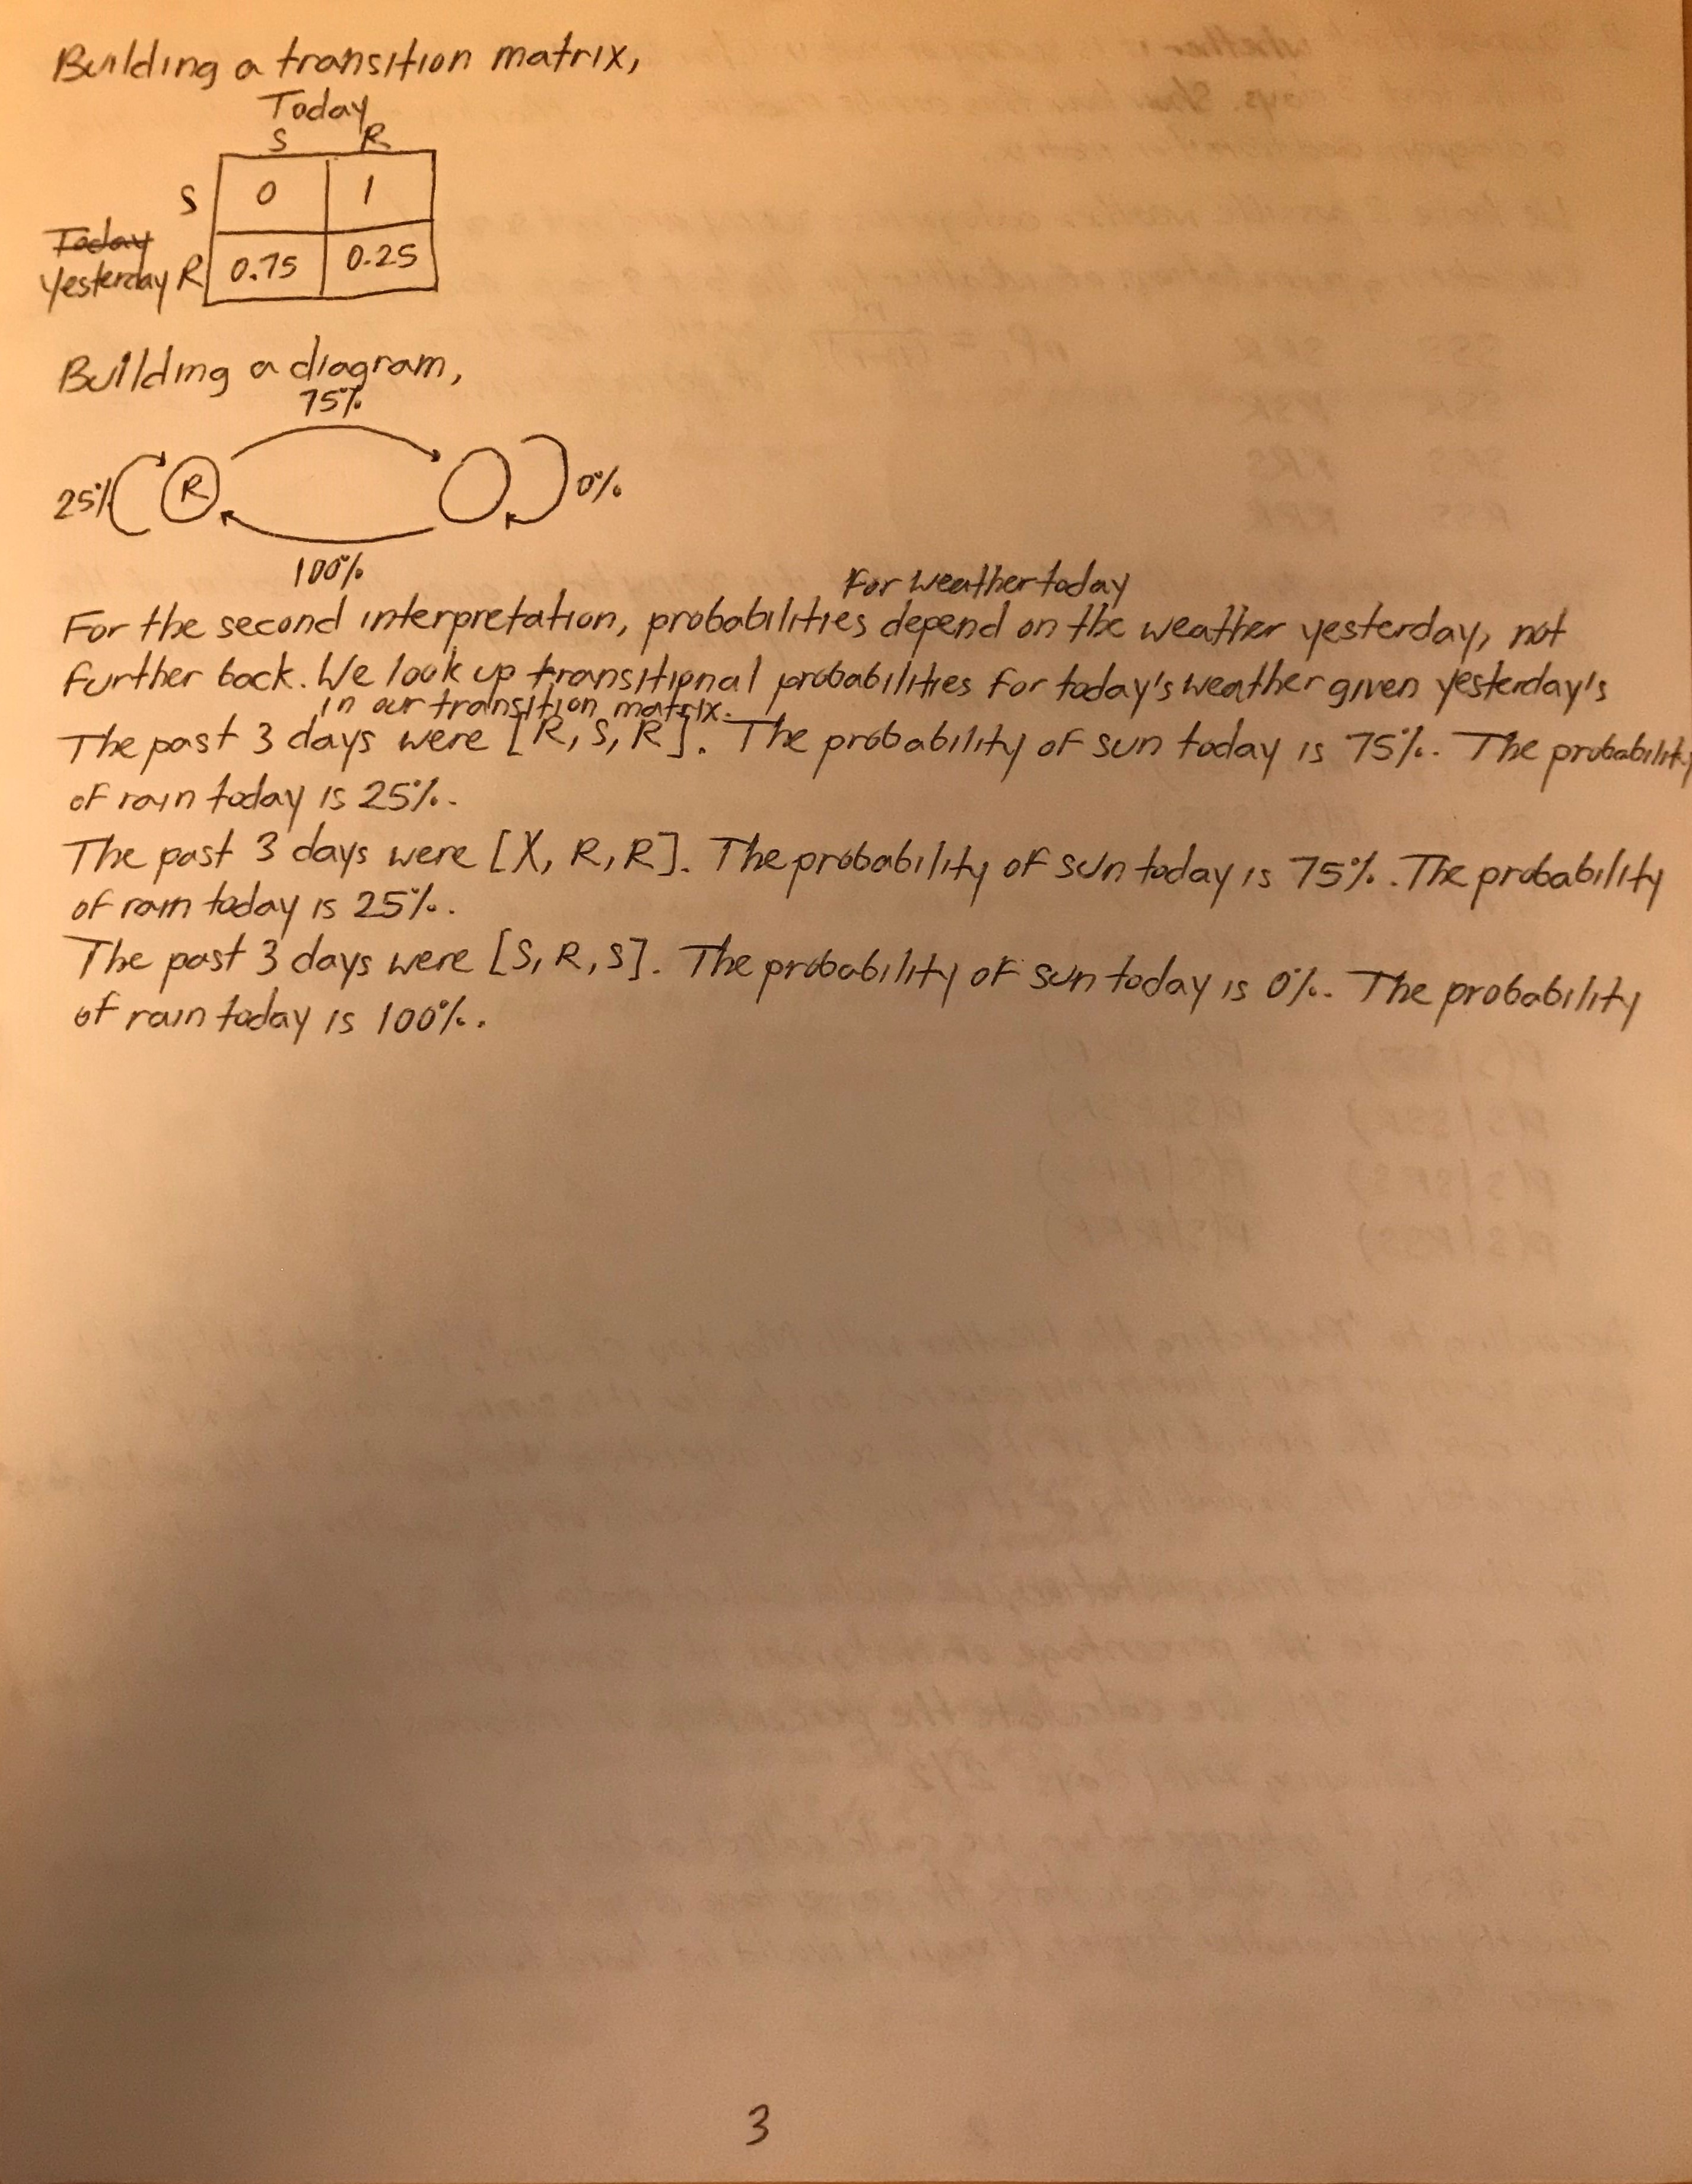 Building a transition matrix,
Today
S R
S 0 1
Today
Yesterday R 0.75 0.25
Building a diagram,
75%
25% R 0%
100%
for weather today
For the second interpretation, probabilities depend on the weather yesterday, not
further back. We look up transitional probabilities for today's weather given yesterday's
in our transition matrix.
The past 3 days were [R, S, R]. The probability of sun today is 75%. The probability
of rain today is 25%.
The past 3 days were [X, R, R]. The probability of sun today is 75%. The probability
of rain today is 25%.
The past 3 days were [S, R, S]. The probability of sun today is 0%. The probability
of rain today is 100%.
3